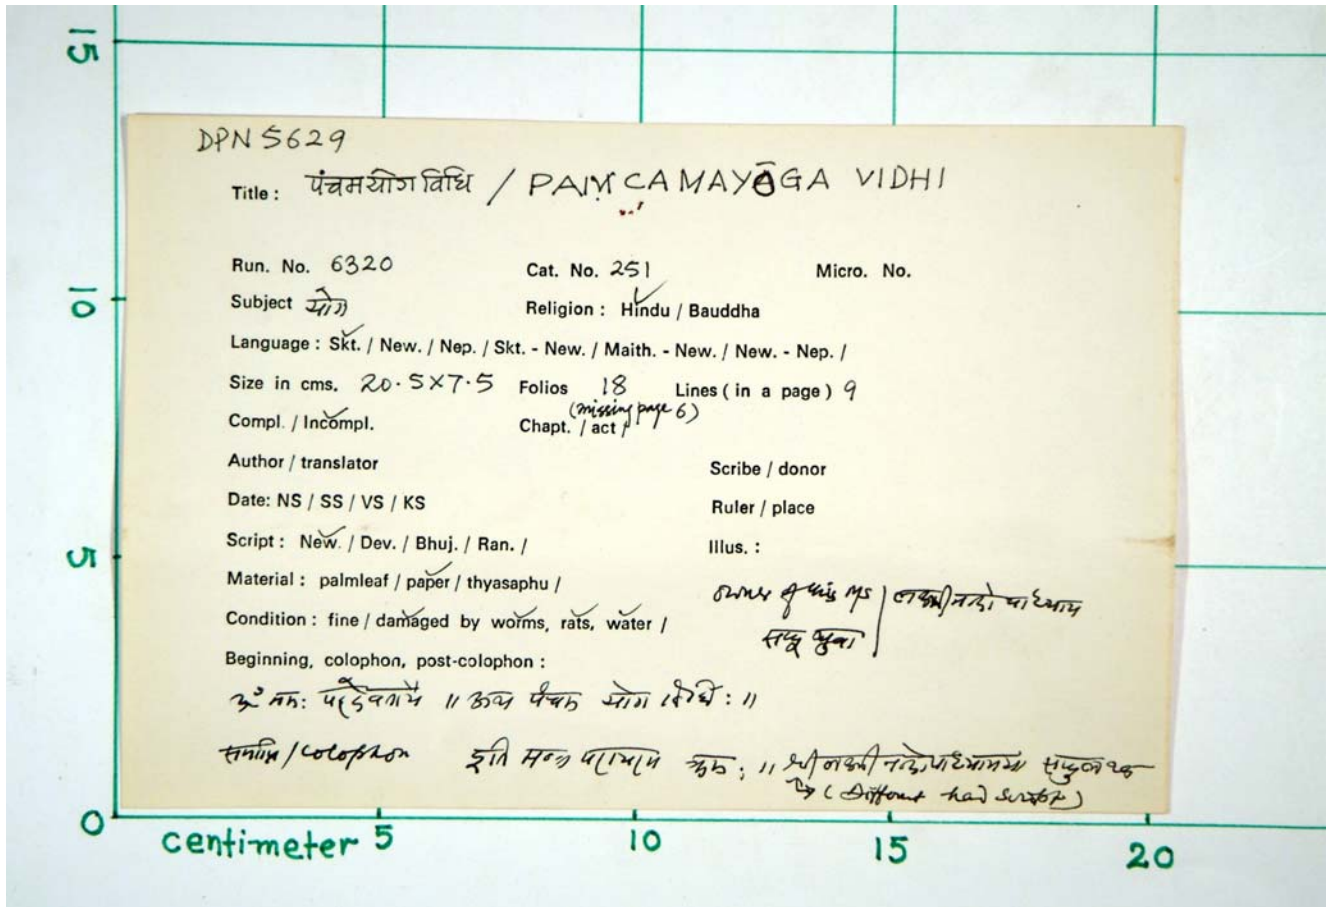 15
DPN 5629
Title : पंचमयोग विधि / PAṂCAMAYOGA VIDHI
Run. No. 6320 Cat. No. 251 Micro. No.
10
Subject योग Religion : Hindu / Bauddha
Language : Skt. / New. / Nep. / Skt. - New. / Maith. - New. / New. - Nep. /
Size in cms. 20.5X7.5 Folios 18 Lines ( in a page ) 9
(missing page 6)
Compl. / Incompl. Chapt. / act /
Author / translator Scribe / donor
Date: NS / SS / VS / KS Ruler / place
Script : New. / Dev. / Bhuj. / Ran. / Illus. :
5
Material : palmleaf / paper / thyasaphu /
owner of this MS
Condition : fine / damaged by worms, rats, water /
Beginning, colophon, post-colophon :
ॐ नमः ॥ अथ पंचम योग विधिः ॥
समाप्ति / colophon इति क्रमः ॥
(Different hand
0
centimeter 5 10 15 20